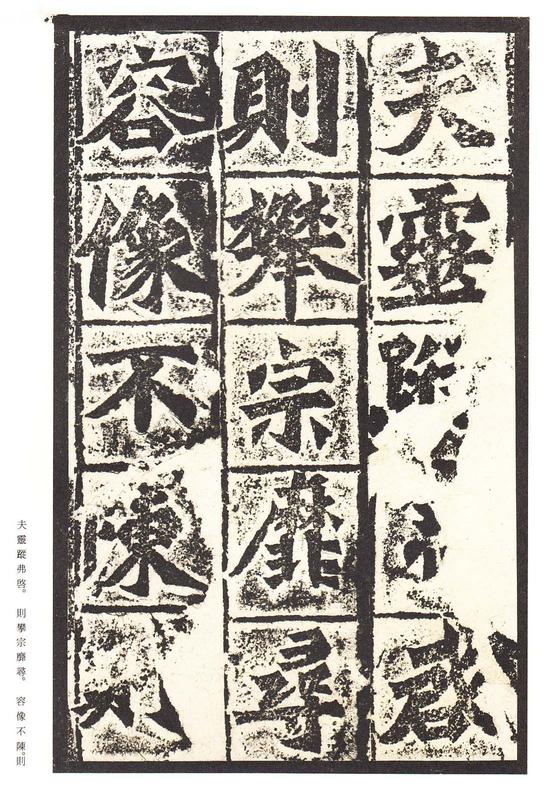 夫靈蹤弗啓
則攀宗靡尋
容像不陳則
夫靈蹤弗啓。則攀宗靡尋。容像不陳。則